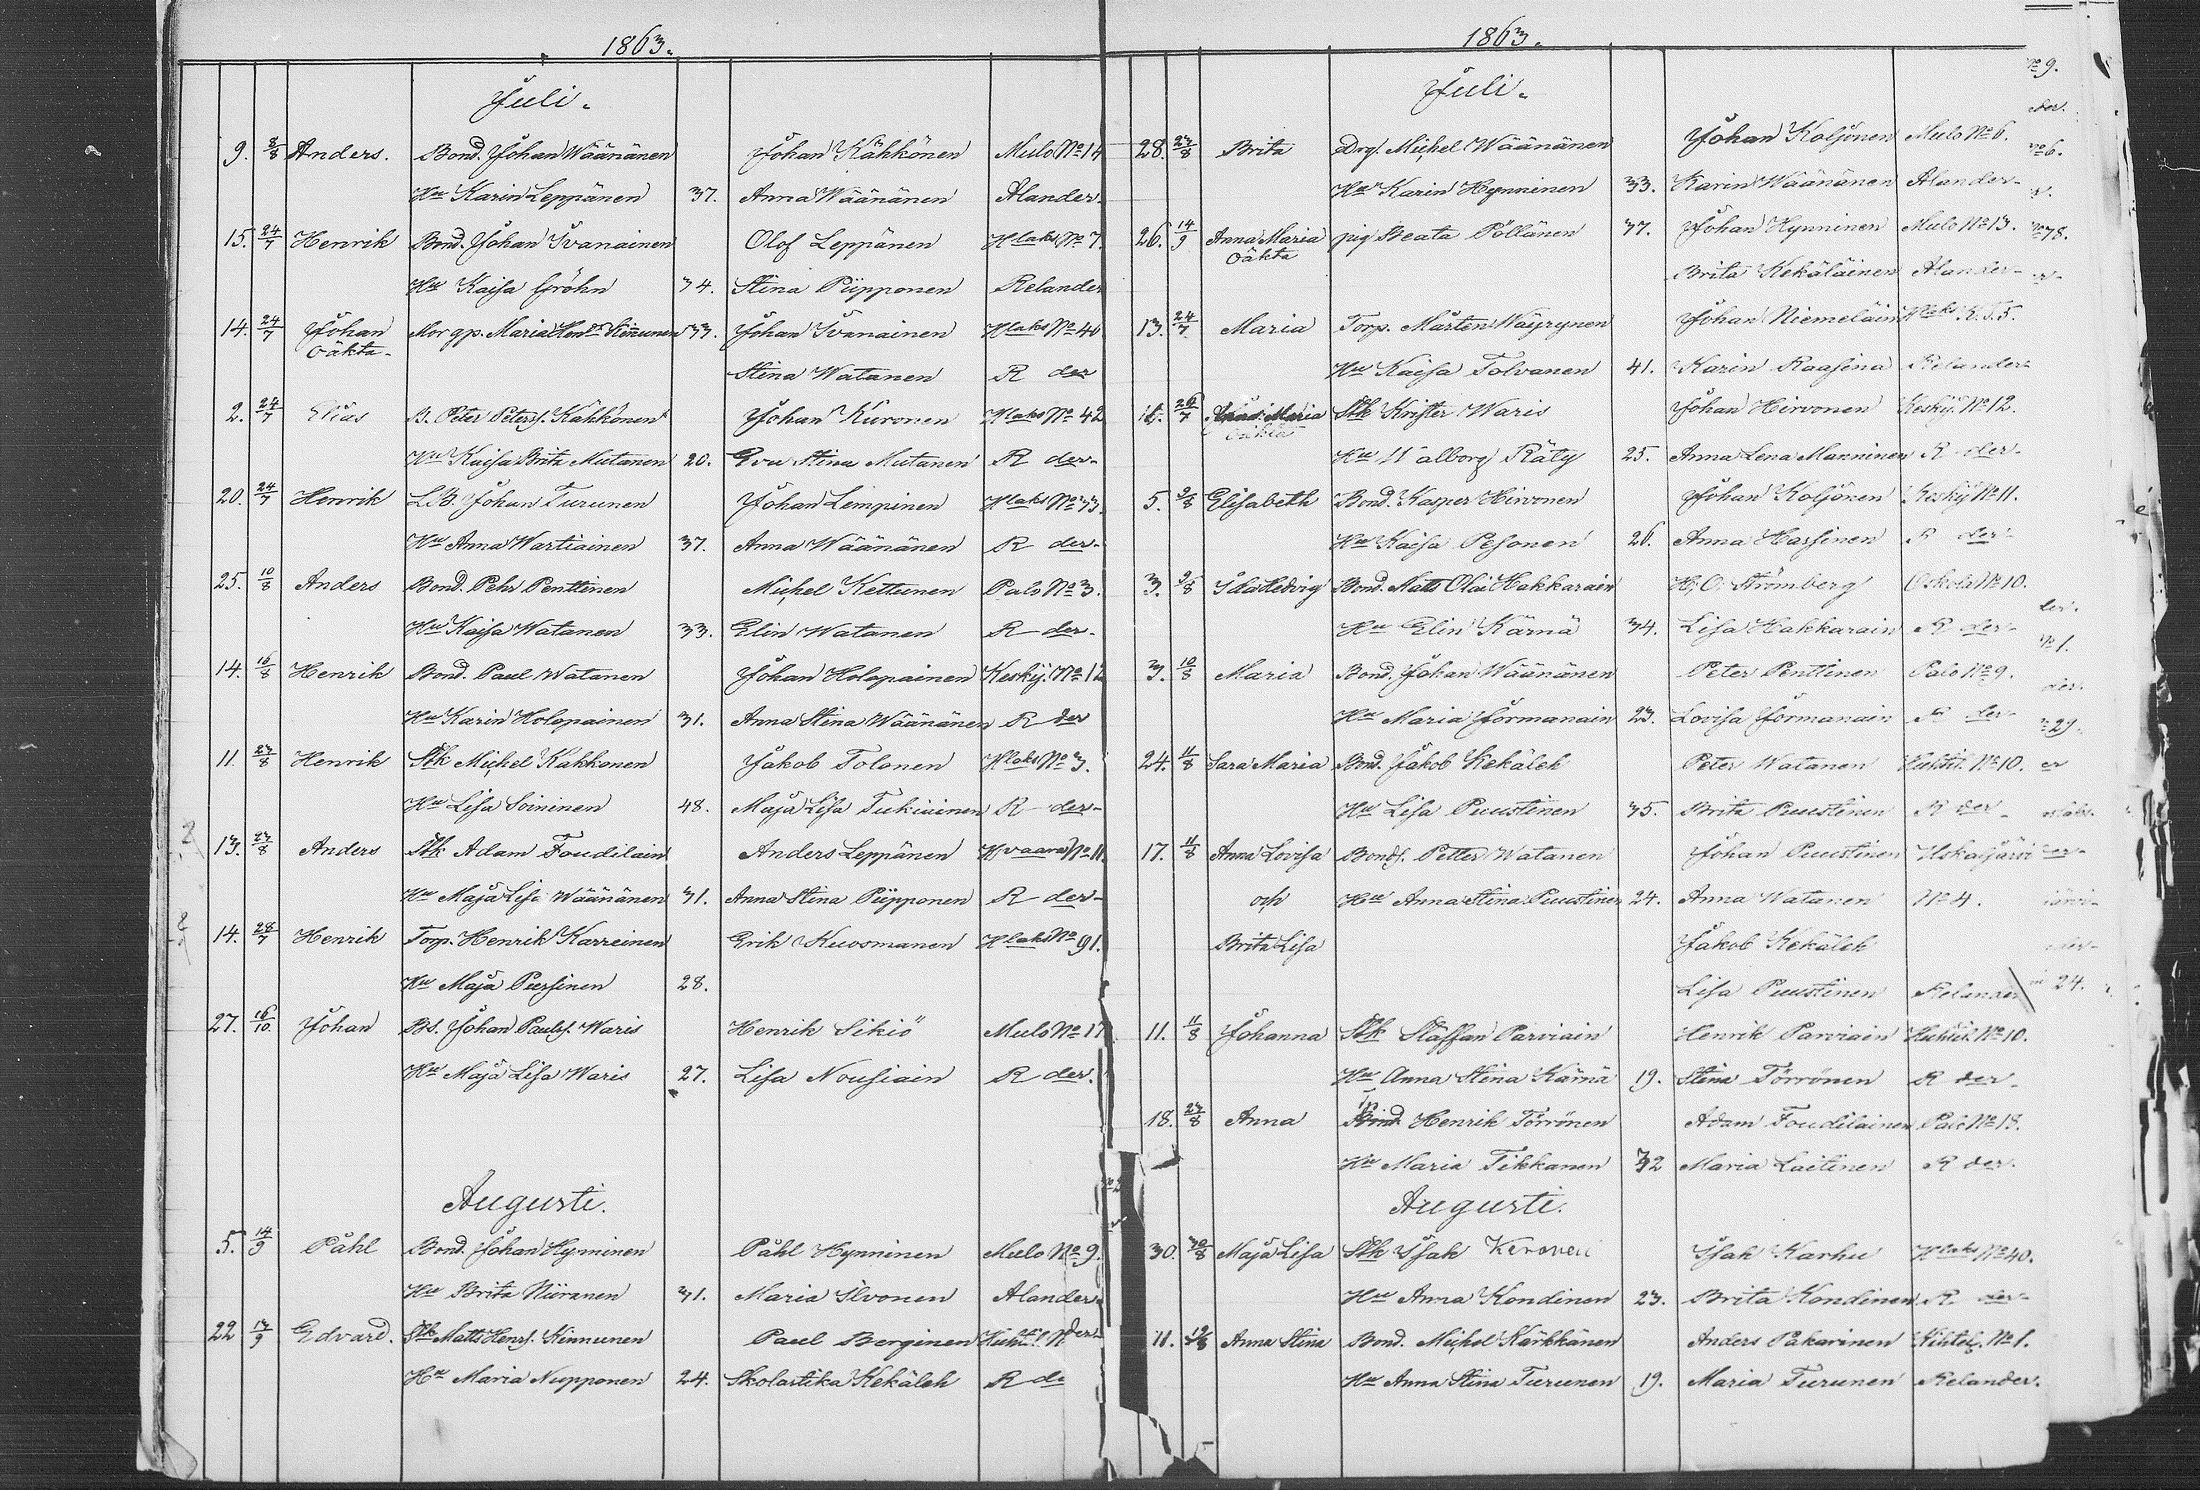 1863.
Juli.
9. 8/8 Anders. Bond. Johan Wäänänen Johan Kähkönen Mulo No 14
Hu Karin Leppänen 37. Anna Wäänänen Alander.
15. 24/7 Henrik Bond. Johan Ivanainen Olof Leppänen Hlaks No 7.
Hu Kaisa Gröhn 34. Stina Piipponen Relander
14. 24/7 Johan Mor gp. Maria Hendr Kinnunen 33. Johan Ivanainen Hlaks No 40
oäkta. Stina Watanen R der
2. 24/7 Elias B. Peter Peters. Kähkönen Johan Kuronen Hlaks No 42
Hu Kaisa Brita Mutanen 20. Eva Stina Mutanen R der.
20. 24/7 Henrik L.B. Johan Turunen Johan Lempinen Hlaks No 33.
Hu Anna Wartiainen 37. Anna Wäänänen R der.
25. 10/8 Anders Bond. Pehr Penttinen Michel Kettunen Palo No 3.
Hu Kaisa Watanen 33. Elin Watanen R der.
14. 16/8 Henrik Bond. Paul Watanen Johan Holopainen Keskij. No 12
Hu Karin Holopainen 31. Anna Stina Wäänänen R der
11. 23/8 Henrik Stk Michel Kakkonen Jakob Tolonen Hlaks No 3.
Hu Lisa Soininen 48. Maja Lisa Tukiainen R der.
13. 23/8 Anders Stk Adam Foudilain Anders Leppänen Hvaara No 11.
Hu Maja Lisa Wäänänen 31. Anna Stina Piipponen R der.
14. 28/7 Henrik Torp. Henrik Karreinen Erik Kuosmanen Hlaks No 91.
Hu Maja Pursinen 28.
27. 16/10. Johan Bs. Johan Pauls. Waris Henrik Sikiö Mulo No 17
Hu Maja Lisa Waris 27. Lisa Nousiain R der.
Augusti.
5. 14/9 Påhl Bond. Johan Hyminen Påhl Hynninen Mulo No 9.
Hu Brita Niiranen 31. Maria Ilvonen Alander.
22 13/9 Edvard. Stk Matts Henrs. Kinnunen Paul Berginen
Hu Maria Nupponen 24. Skolastika Kekäleh R de
1863.
Juli.
28. 23/8 Brita Drg. Michel Wäänänen Johan Koljonen Mulo No 6.
Hu Karin Hynninen 33. Karin Wäänänen Alander.
26. 14/9 Anna Maria pig Beata Pöllänen 37. Johan Hynninen Mulo No 13.
oäkta Brita Kekäläinen Alander.
13. 24/7. Maria Torp. Mårten Wäyrynen Johan Niemeläin Hlaks K.T. 5.
Hu Kaisa Tolvanen 41. Karin Raasina Relander
Maria Stk Krister Waris Johan Hirvonen Keskij. No 12.
Hu Walborg Räty 25. Anna Lena Manninen R der.
5. 9/8 Elisabeth Bond. Kasper Hirvonen Johan Koljonen Keskij No 11.
Hu Kaisa Pesonen 26. Anna Hassinen R der.
3. 9/8 Ida Hedvig Bond. Matts Olai Hakkarain H. O. Strömberg Oskola No 10.
Hu Elin Kärnä 34. Lisa Hakkarain R der.
3. 10/8 Maria Bond. Johan Wäänänen Peter Penttinen Palo No 9.
Hu Maria Jormanain 23. Lovisa Jormanain R der.
24. 11/8 Sara Maria Bond. Jakob Kekäleh Peter Watanen Huhtil. No 10.
Hu Lisa Puustinen 35. Brita Puustinen R der.
17. 11/8 Anna Lovisa Bonds. Petter Watanen Johan Puustinen Uskaljärvi
och Hu Anna Stina Puustinen 24. Anna Watanen No 4.
Brita Lisa Jakob Kekäleh
Lisa Puustinen Relander
11. 11/8 Johanna Stk Staffan Parviain Henrik Parviain Huhtil. No 10.
Hu Anna Stina Kärnä 19. Stina Törrönen R der.
18. 23/8 Anna Bond. Henrik Törrönen Adam Foudilainen Palo No 18.
Hu Maria Tikkanen 32 Maria Laitinen R der.
Augusti.
30. 30/8 Maja Lisa Stk Isak Keronen Isak Karhu Hlaks No 40.
Hu Anna Kondinen 23. Brita Kondinen R der
11. Anna Stina Bond. Michel Karkkänen Anders Pakarinen No 1.
Hu Anna Stina Turunen 19. Maria Turunen Relander.